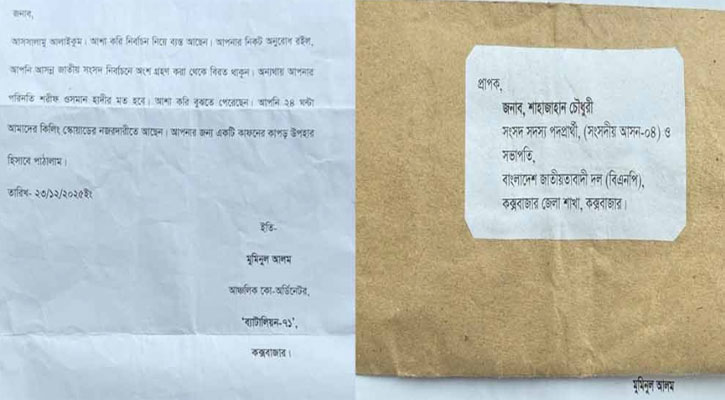 জনাব,
আসসালামু আলাইকুম। আশা করি নির্বাচন নিয়ে ব্যস্ত আছেন। আপনার নিকট অনুরোধ রইল,
আপনি আসন্ন জাতীয় সংসদ নির্বাচনে অংশ গ্রহণ করা থেকে বিরত থাকুন। অন্যথায় আপনার
পরিনতি শরীফ ওসমান হাদীর মত হবে। আশা করি বুঝতে পেরেছেন। আপনি ২৪ ঘন্টা
আমাদের কিলিং স্কোয়াডের নজরদারীতে আছেন। আপনার জন্য একটি কাফনের কাপড় উপহার
হিসাবে পাঠালাম।
তারিখ- ২৩/১২/২০২৫ইং
ইতি-
মুমিনুল আলম
আঞ্চলিক কো-অর্ডিনেটর,
'ব্যাটালিয়ন-৭১',
কক্সবাজার।
প্রাপক,
জনাব, শাহাজাহান চৌধুরী
সংসদ সদস্য পদপ্রার্থী, (সংসদীয় আসন-০৪) ও
সভাপতি,
বাংলাদেশ জাতীয়তাবাদী দল (বিএনপি),
কক্সবাজার জেলা শাখা, কক্সবাজার।
মুমিনুল আলম